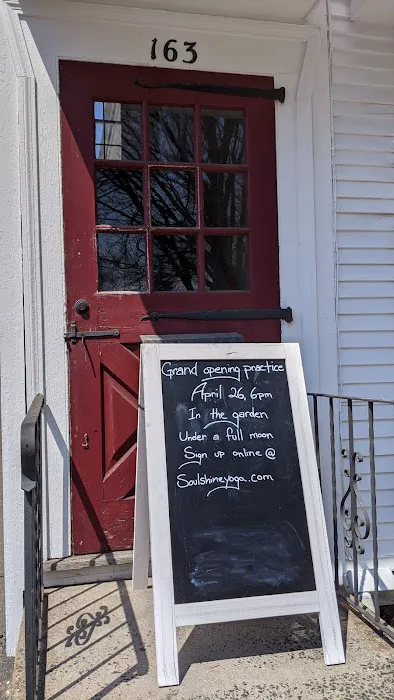 163
Grand opening practice
April 26, 6pm
In the garden
Under a full moon
Sign up online @
Soulshineyoga.com